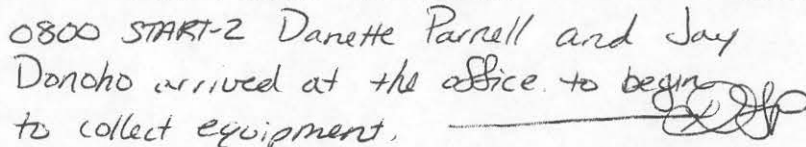 0800 START-2 Danette Parnell and Jay
Donoho arrived at the office to begin
to collect equipment.